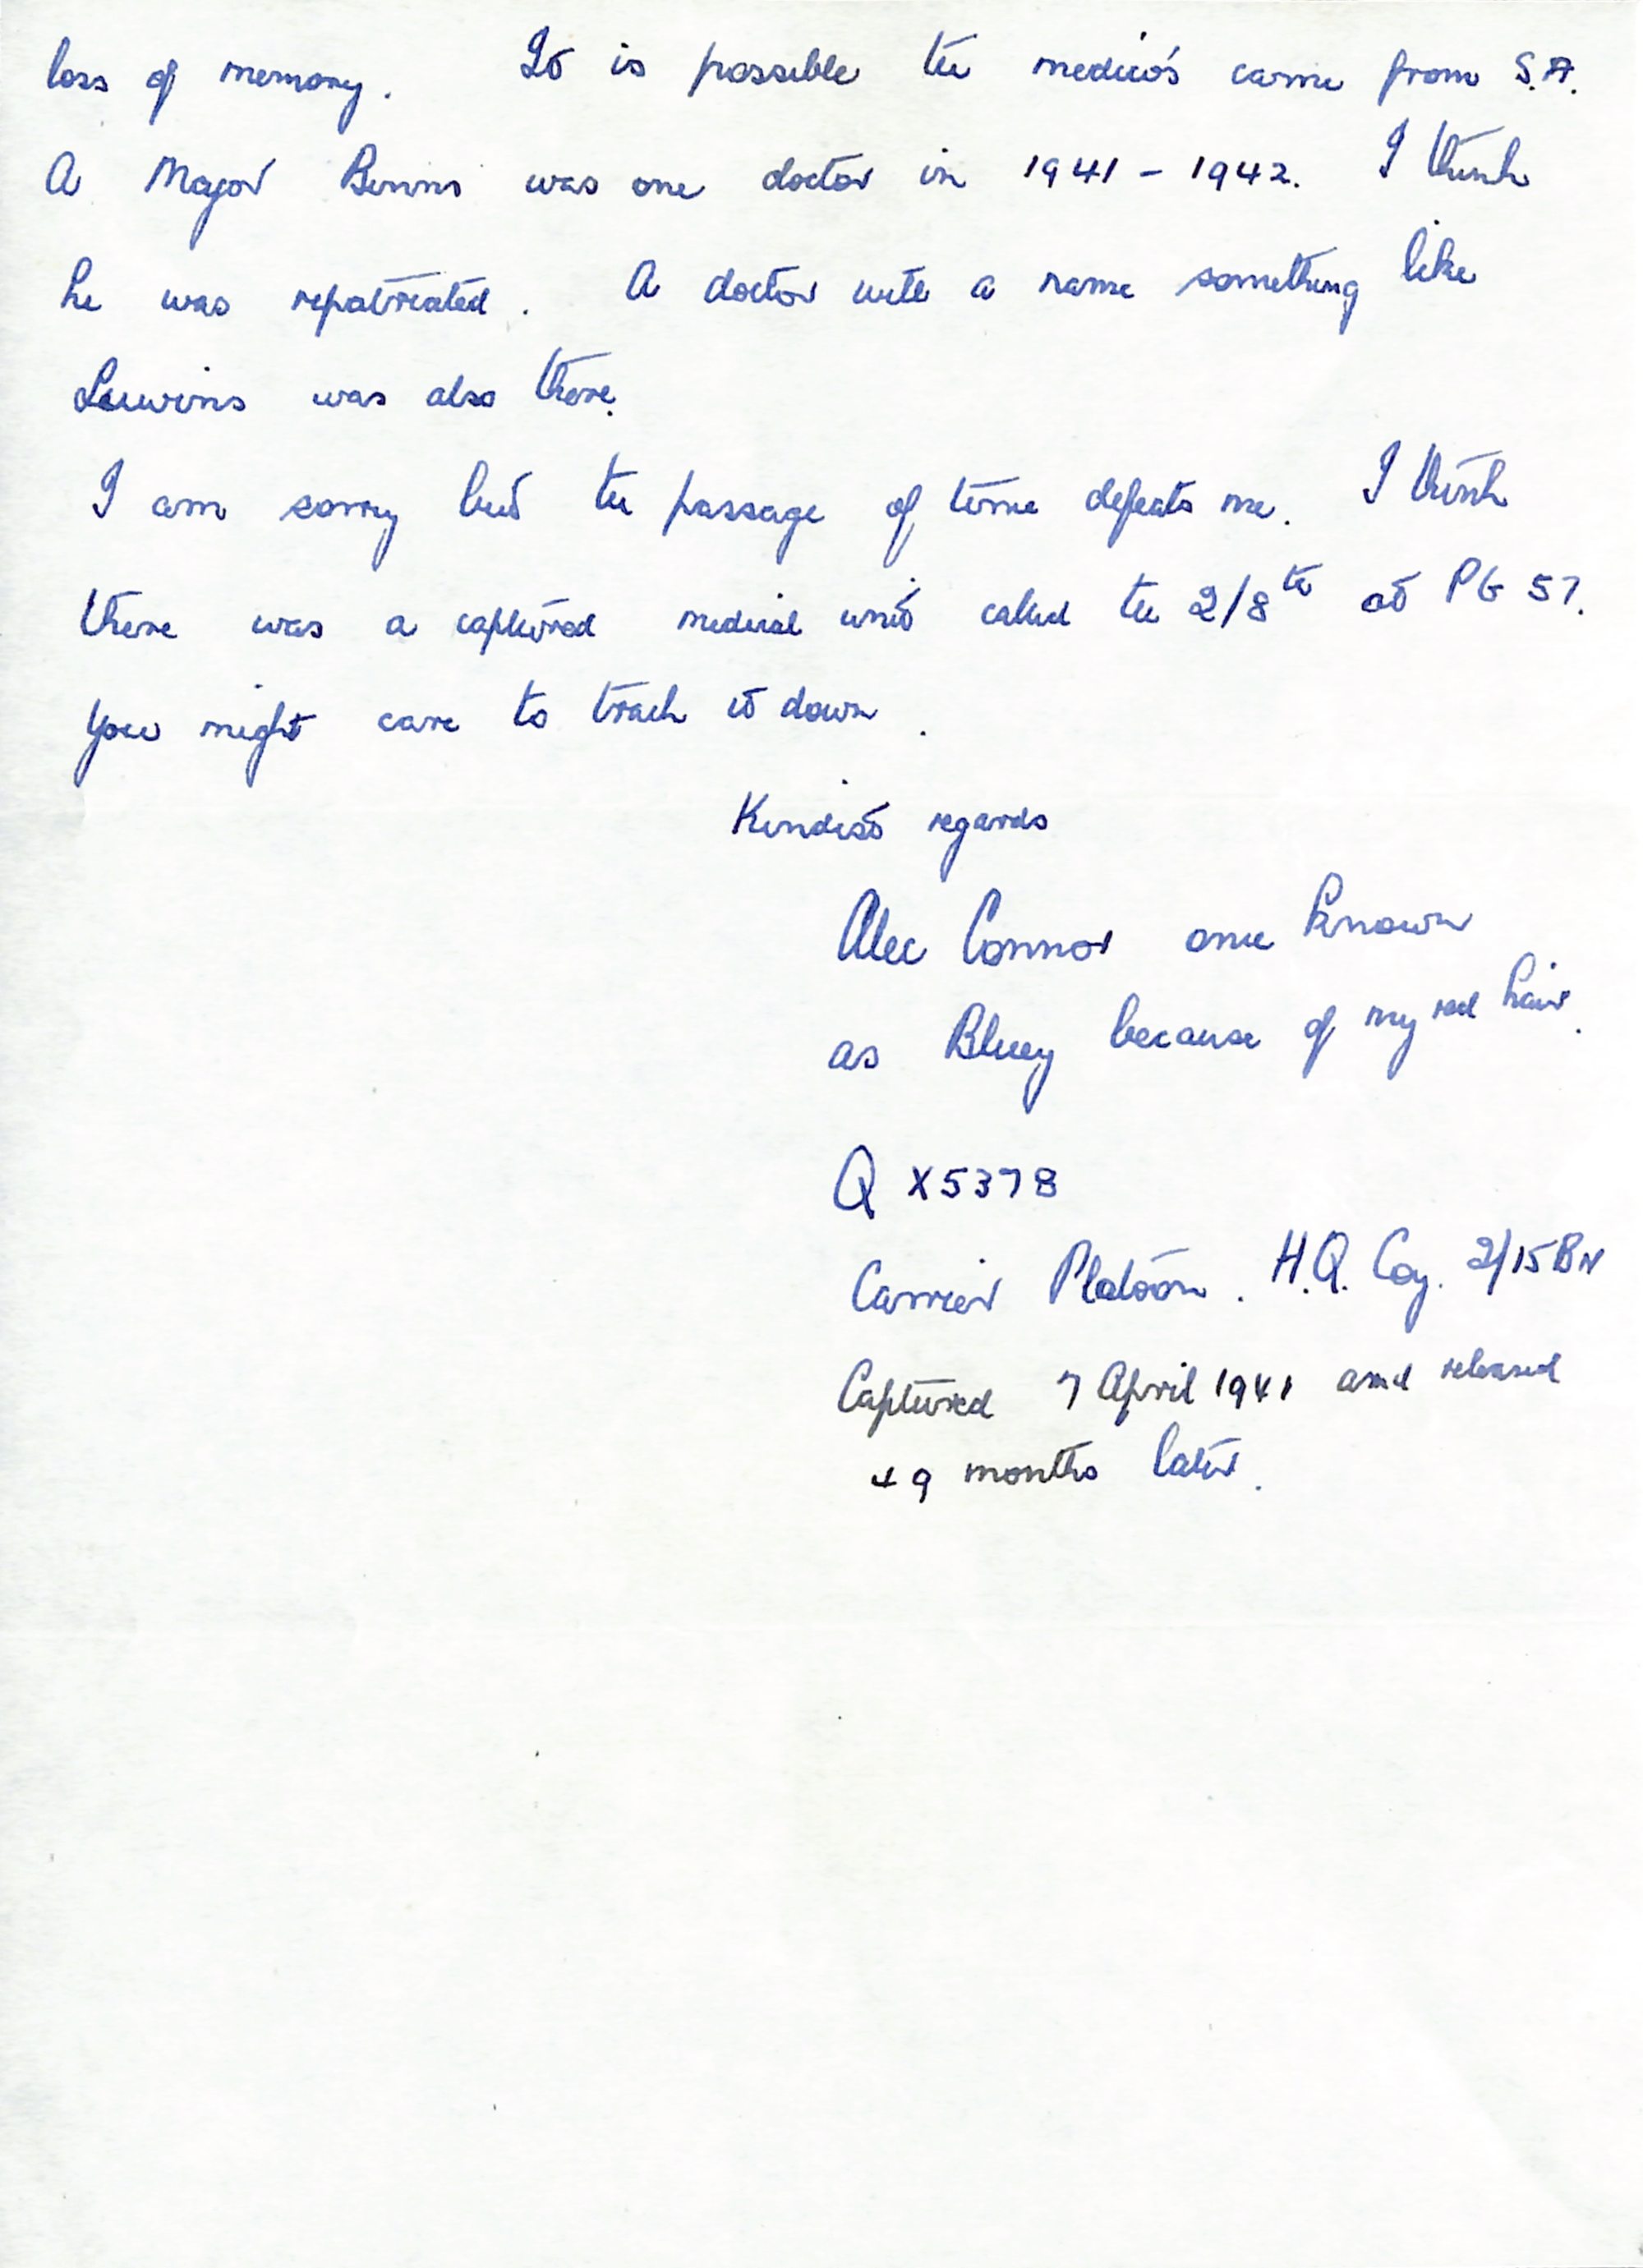 loss of memory. It is possible the medico's came from S.A.
A Major Binns was one doctor in 1941 - 1942. I think
he was repatriated. A doctor with a name something like
Leuwins was also there.
I am sorry but the passage of time defeats me. I think
there was a captured medical unit called the 2/8th at PG 57.
You might care to track it down.
Kindest regards
Alec Connor once known
as Bluey because of my red hair.
QX5378
Carrier Platoon. H.Q. Coy. 2/15 BN
Captured 7 April 1941 and released
49 months later.